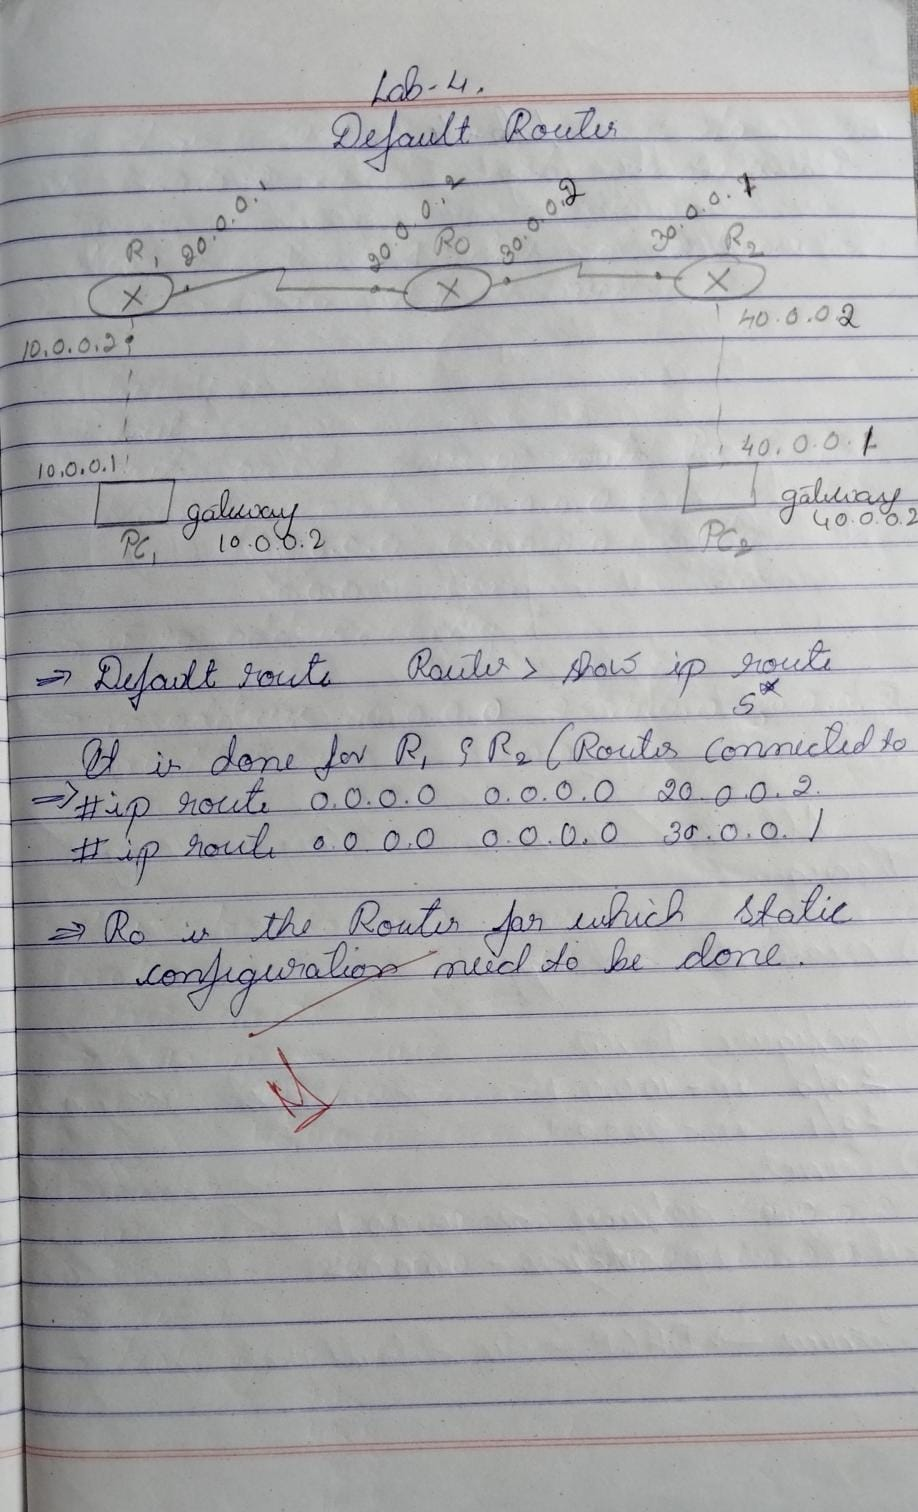 Lab-4.
Default Router
20.0.0.1 20.0.0.2 30.0.0.2 30.0.0.1
R1 R0 R2
X X X
10.0.0.2 40.0.0.2
10.0.0.1 40.0.0.1
gateway gateway
PC1 10.0.0.2 PC2 40.0.0.2
⇒ Default route Router> show ip route
S*
It is done for R1 & R2 (Router connected to
⇒ #ip route 0.0.0.0 0.0.0.0 20.0.0.2.
#ip route 0.0.0.0 0.0.0.0 30.0.0.1
⇒ R0 is the Router for which static
configuration need to be done.